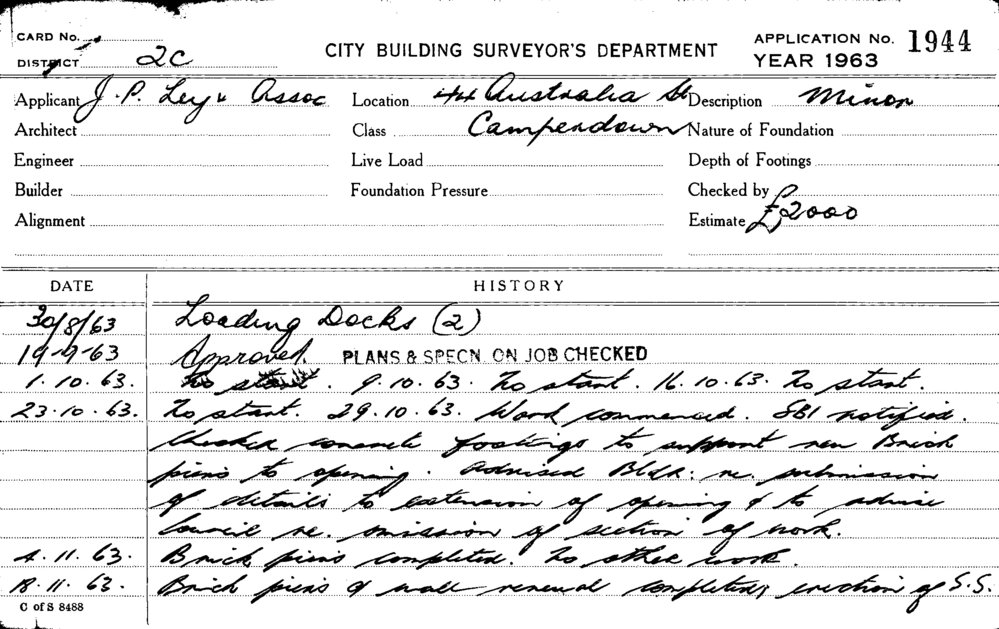 CARD No.
DISTRICT 2C
CITY BUILDING SURVEYOR'S DEPARTMENT
APPLICATION No. 1944
YEAR 1963
Applicant J. P. Ley & Assoc Location 44 Australia St Description Minor
Architect Class Camperdown Nature of Foundation
Engineer Live Load Depth of Footings
Builder Foundation Pressure Checked by
Alignment Estimate £2000
DATE HISTORY
30/8/63 Loading Docks (2)
19-9-63 Approved. PLANS & SPECN ON JOB CHECKED
1.10.63. No start. 9.10.63. No start. 16.10.63. No start.
23.10.63. No start. 29.10.63. Work commenced. SBI notified.
Checked concrete footings to support new Brick
piers to opening. Advised Bldr: re. submission
of details to extension of opening & to advise
Council re. omission of section of work.
4.11.63. Brick piers completed. No other work.
18.11.63. Brick piers & wall renewal completed, erection of S.S.
C of S 8488